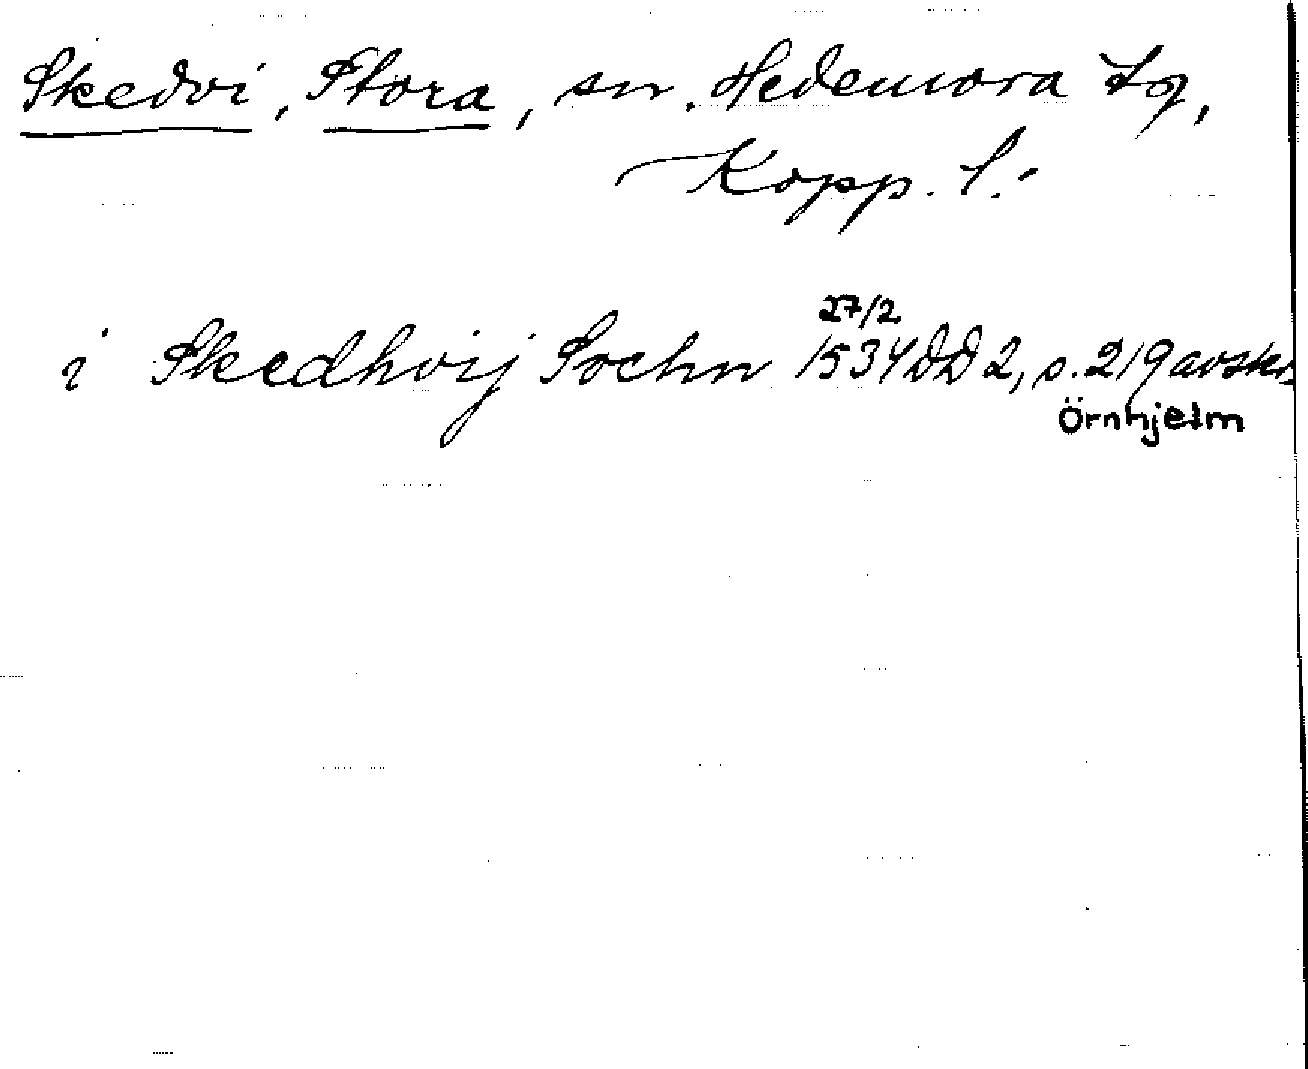 Skedvi, Stora, sn. Hedemora tg,
Kopp. l.
27/2
i Skedhvij Sochn 1534 DD 2, s. 219 avskr.
Örnhjelm